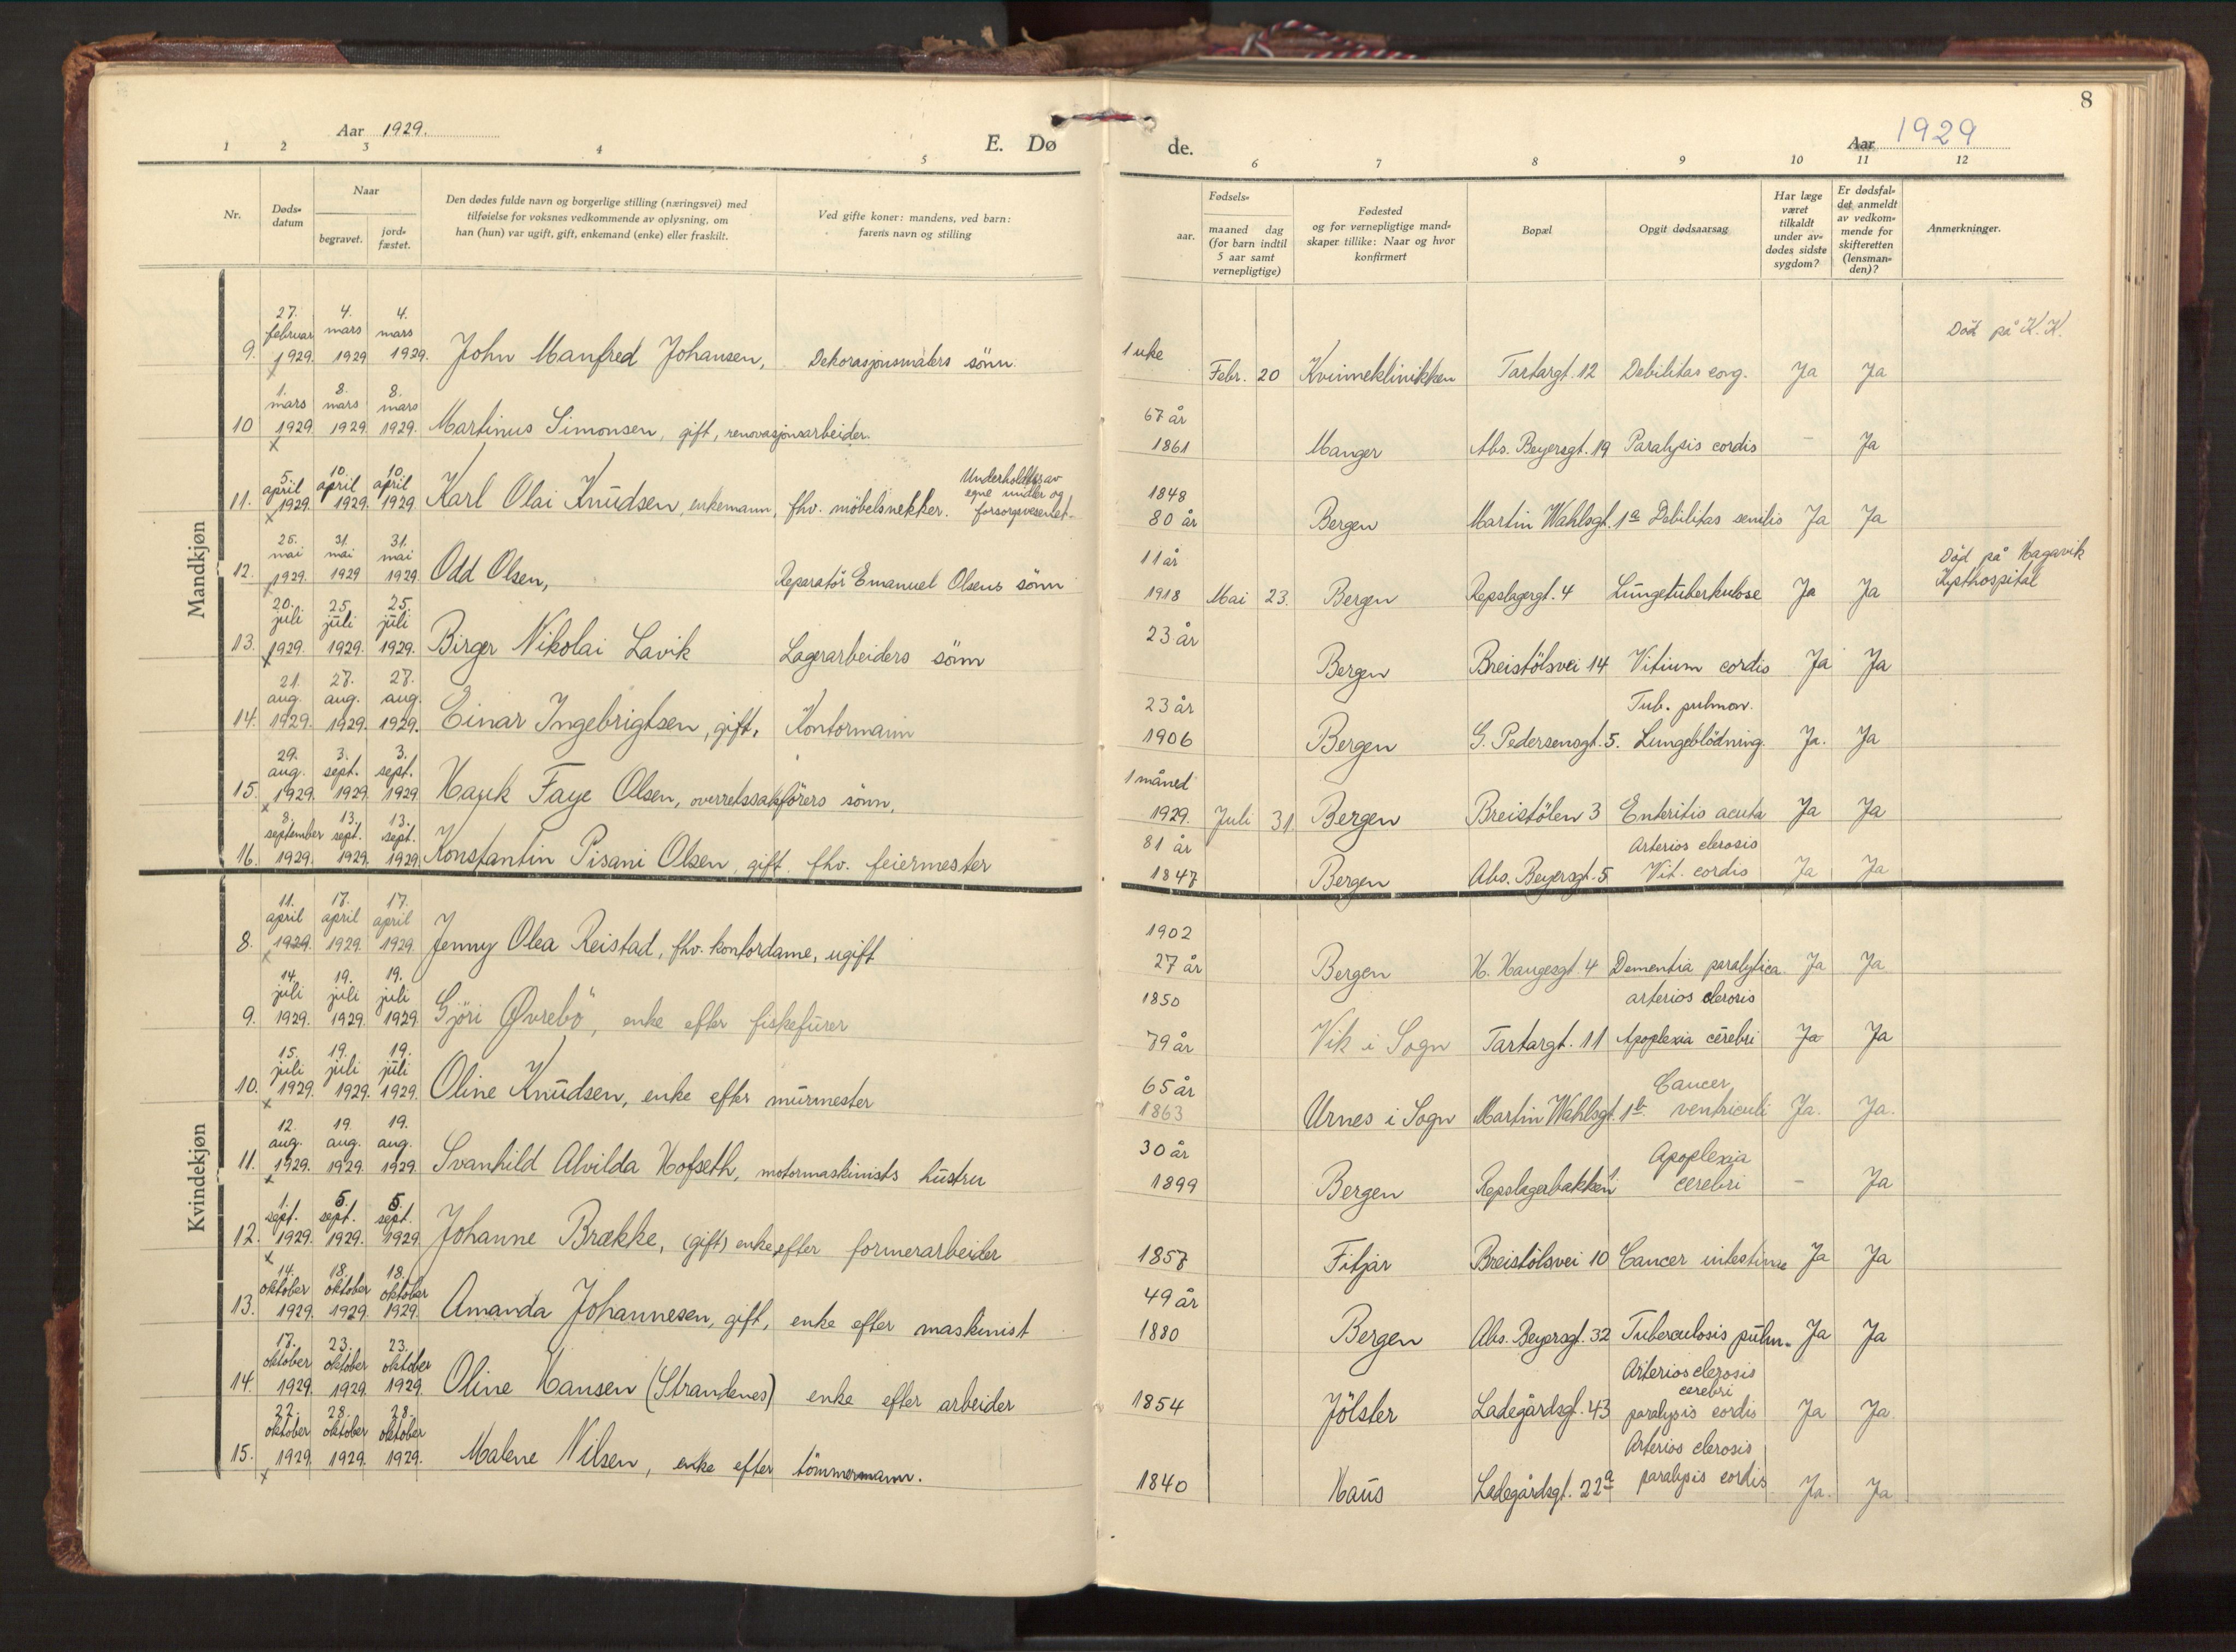 8
Aar 1929.
E. Dø
de.
Aar 1929
1 2 3 4 5 6 7 8 9 10 11 12
Nr.
Døds-
datum
Naar
begravet.
jord-
fæstet.
Den dødes fulde navn og borgerlige stilling (næringsvei) med
tilføielse for voksnes vedkommende av oplysning, om
han (hun) var ugift, gift, enkemand (enke) eller fraskilt.
Ved gifte koner: mandens, ved barn:
farens navn og stilling
Fødsels-
aar.
maaned dag
(for barn indtil
5 aar samt
vernepligtige)
Fødested
og for vernepligtige mand-
skaper tillike: Naar og hvor
konfirmert
Bopæl
Opgit dødsaarsag
Har læge
været
tilkaldt
under av-
dødes sidste
sygdom?
Er dødsfal-
det anmeldt
av vedkom-
mende for
skifteretten
(lensman-
den)?
Anmerkninger.
Mandkjøn
27. 4. 4.
februar mars mars
9. 1929. 1929 1929. John Manfred Johansen, Dekorasjonsmalers sönn. 1 uke Febr. 20 Kvinneklinikken Tartargt. 12 Debilitas cong. Ja Ja Död på K.K.
x
1. 8. 8.
mars mars mars
10 1929. 1929. 1929. Martinus Simonsen, gift, renovasjonsarbeider. 67 år
1861 Manger Abs. Beyersgt. 19 Paralysis cordis - Ja
x
5. 10. 10.
april april april
11. 1929. 1929. 1929. Karl Olai Knudsen, enkemann, fhv. möbelsnekker. Underholdtes av
egne midler og
forsorgsvesenet. 1848
80 år Bergen Martin Wahlsgt. 1a Debilitas senilis Ja Ja
x
25. 31. 31.
mai mai mai
12. 1929. 1929 1929. Odd Olsen, Reparatör Emanuel Olsens sönn 11 år
1918 Mai 23. Bergen Repslagergt. 4 Lungetuberkulose Ja Ja Död på Hagavik
Kysthospital
x
20. 25. 25.
juli juli juli
13. 1929. 1929. 1929. Birger Nikolai Lavik Lagerarbeiders sönn 23 år Bergen Breistölsvei 14 Vitium cordis Ja Ja
x
21. 27. 27.
aug. aug. aug.
14. 1929. 1929. 1929. Einar Ingebrigtsen, gift, Kontormann 23 år
1906 Bergen G. Pedersensgt. 5. Tub. pulmon.
Lungeblödning. Ja. Ja
29. 3. 3.
aug. sept. sept.
15. 1929. 1929. 1929 Hauk Faye Olsen, overretssakförers sönn, 1 måned
1929. Juli 31. Bergen Breistölen 3 Enteritis acuta Ja Ja
x
8. 13. 13.
september sept. sept.
16. 1929. 1929. 1929. Konstantin Pisani Olsen, gift. fhv. feiermester 81 år
1847 Bergen Abs. Beyersgt. 5 Arterios clerosis
Vit. cordis Ja Ja
Kvindekjøn
11. 17. 17.
april april april
8. 1929. 1929. 1929. Jenny Olea Reistad, fhv. kontordame, ugift 1902
27 år Bergen H. Haugesgt 4 Dementia paralytica. Ja Ja
x
14. 19. 19.
juli juli juli
9. 1929. 1929. 1929 Gjöri Øvrebö, enke efter fiskefürer 1850
79 år Vik i Sogn Tartargt. 11 arterios clerosis
Apoplexia cerebri Ja Ja
15. 19. 19.
juli juli juli
10. 1929. 1929. 1929. Oline Knudsen, enke efter murmester 65 år
1863 Urnes i Sogn Martin Wahlsgt. 1b Cancer
ventriculi Ja. Ja.
x
12. 19. 19.
aug. aug. aug.
11. 1929. 1929. 1929. Svanhild Alvilda Hofseth, motormaskinists hustru 30 år
1899 Bergen Repslagerbakken Apoplexia
cerebri - Ja
x
1. 5. 5.
sept. sept. sept.
12. 1929. 1929. 1929 Johanne Brække, (gift) enke efter formerarbeider 1857 Fitjar Breistölsvei 10 Cancer intestinae Ja Ja
x
14. 18. 18.
oktober oktober oktober
13. 1929. 1929. 1929. Amanda Johannesen, gift, enke efter maskinist 49 år
1880 Bergen Abs. Beyersgt. 32 Tuberculosis pulm. Ja Ja
17. 23. 23.
oktober oktober oktober
14. 1929. 1929. 1929. Oline Hansen (Strandenes) enke efter arbeider 1854 Jölster Ladegårdsgt. 43 Arterios clerosis
cerebri
paralysis cordis Ja Ja
22. 28. 28.
oktober oktober oktober
15. 1929. 1929. 1929. Malene Nilsen, enke efter tömmermann. 1840 Haus Ladegårdsgt. 22a Arterios clerosis
paralysis cordis Ja. Ja
x